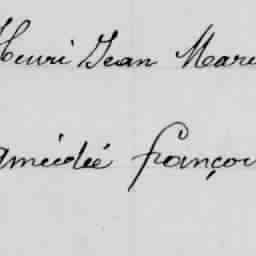 Henri Jean Mari
Amédée françoi